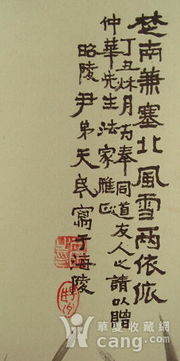 楚南兼塞北風雪兩依依
丁丑秋月為奉同道友人之請以贈
仲華先生法家雅正
昭陵尹弟天民寫于海陵
华夏收藏网